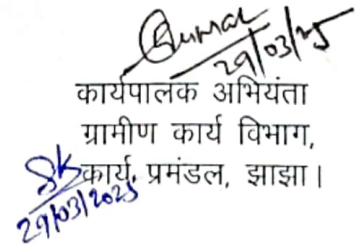 Kumar
29/03/25
कार्यपालक अभियंता
ग्रामीण कार्य विभाग,
कार्य, प्रमंडल, झाझा।
29/03/2025